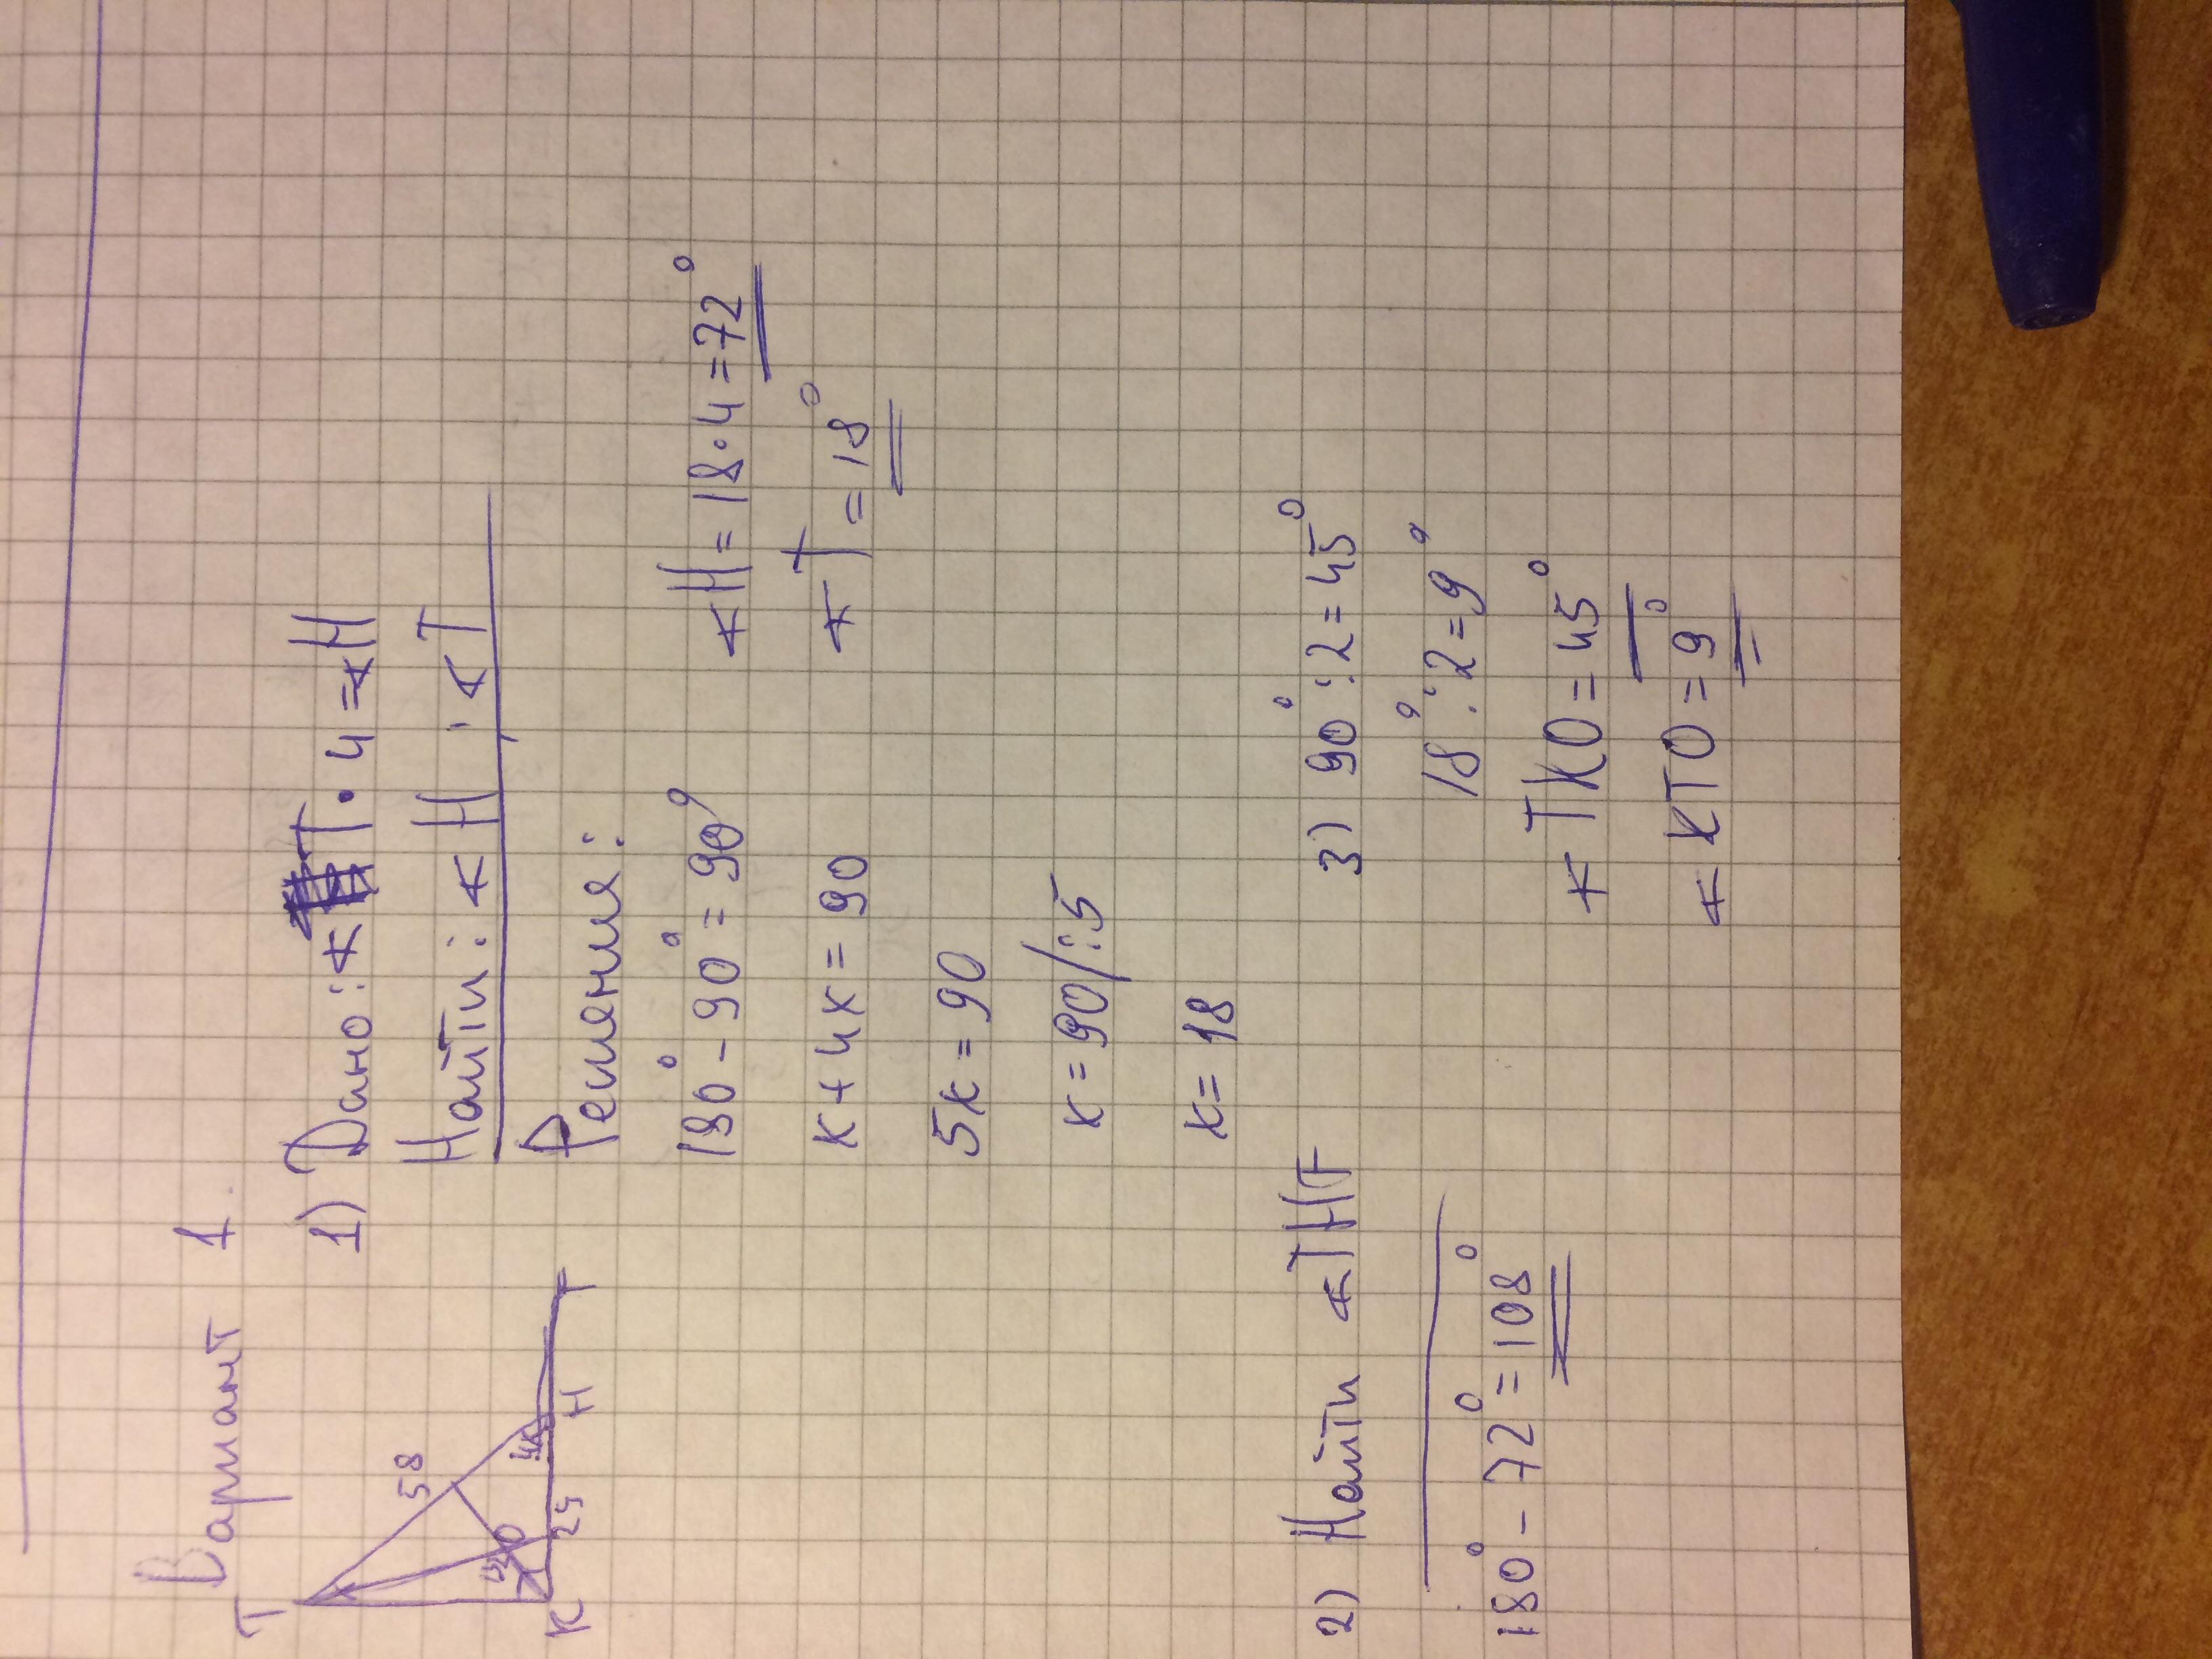 Вариант 1.
T
58
4x
O
K
29
H
F
1) Дано: ∢T · 4 = ∢H
Найти: ∢H, ∢T
Решения:
180° - 90° = 90°
x + 4x = 90
5x = 90
x = 90/:5
x = 18
∢H = 18 · 4 = 72°
∢T = 18°
2) Найти ∢THF
180° - 72° = 108°
3) 90° : 2 = 45°
18° : 2 = 9°
∢TKO = 45°
∢KTO = 9°